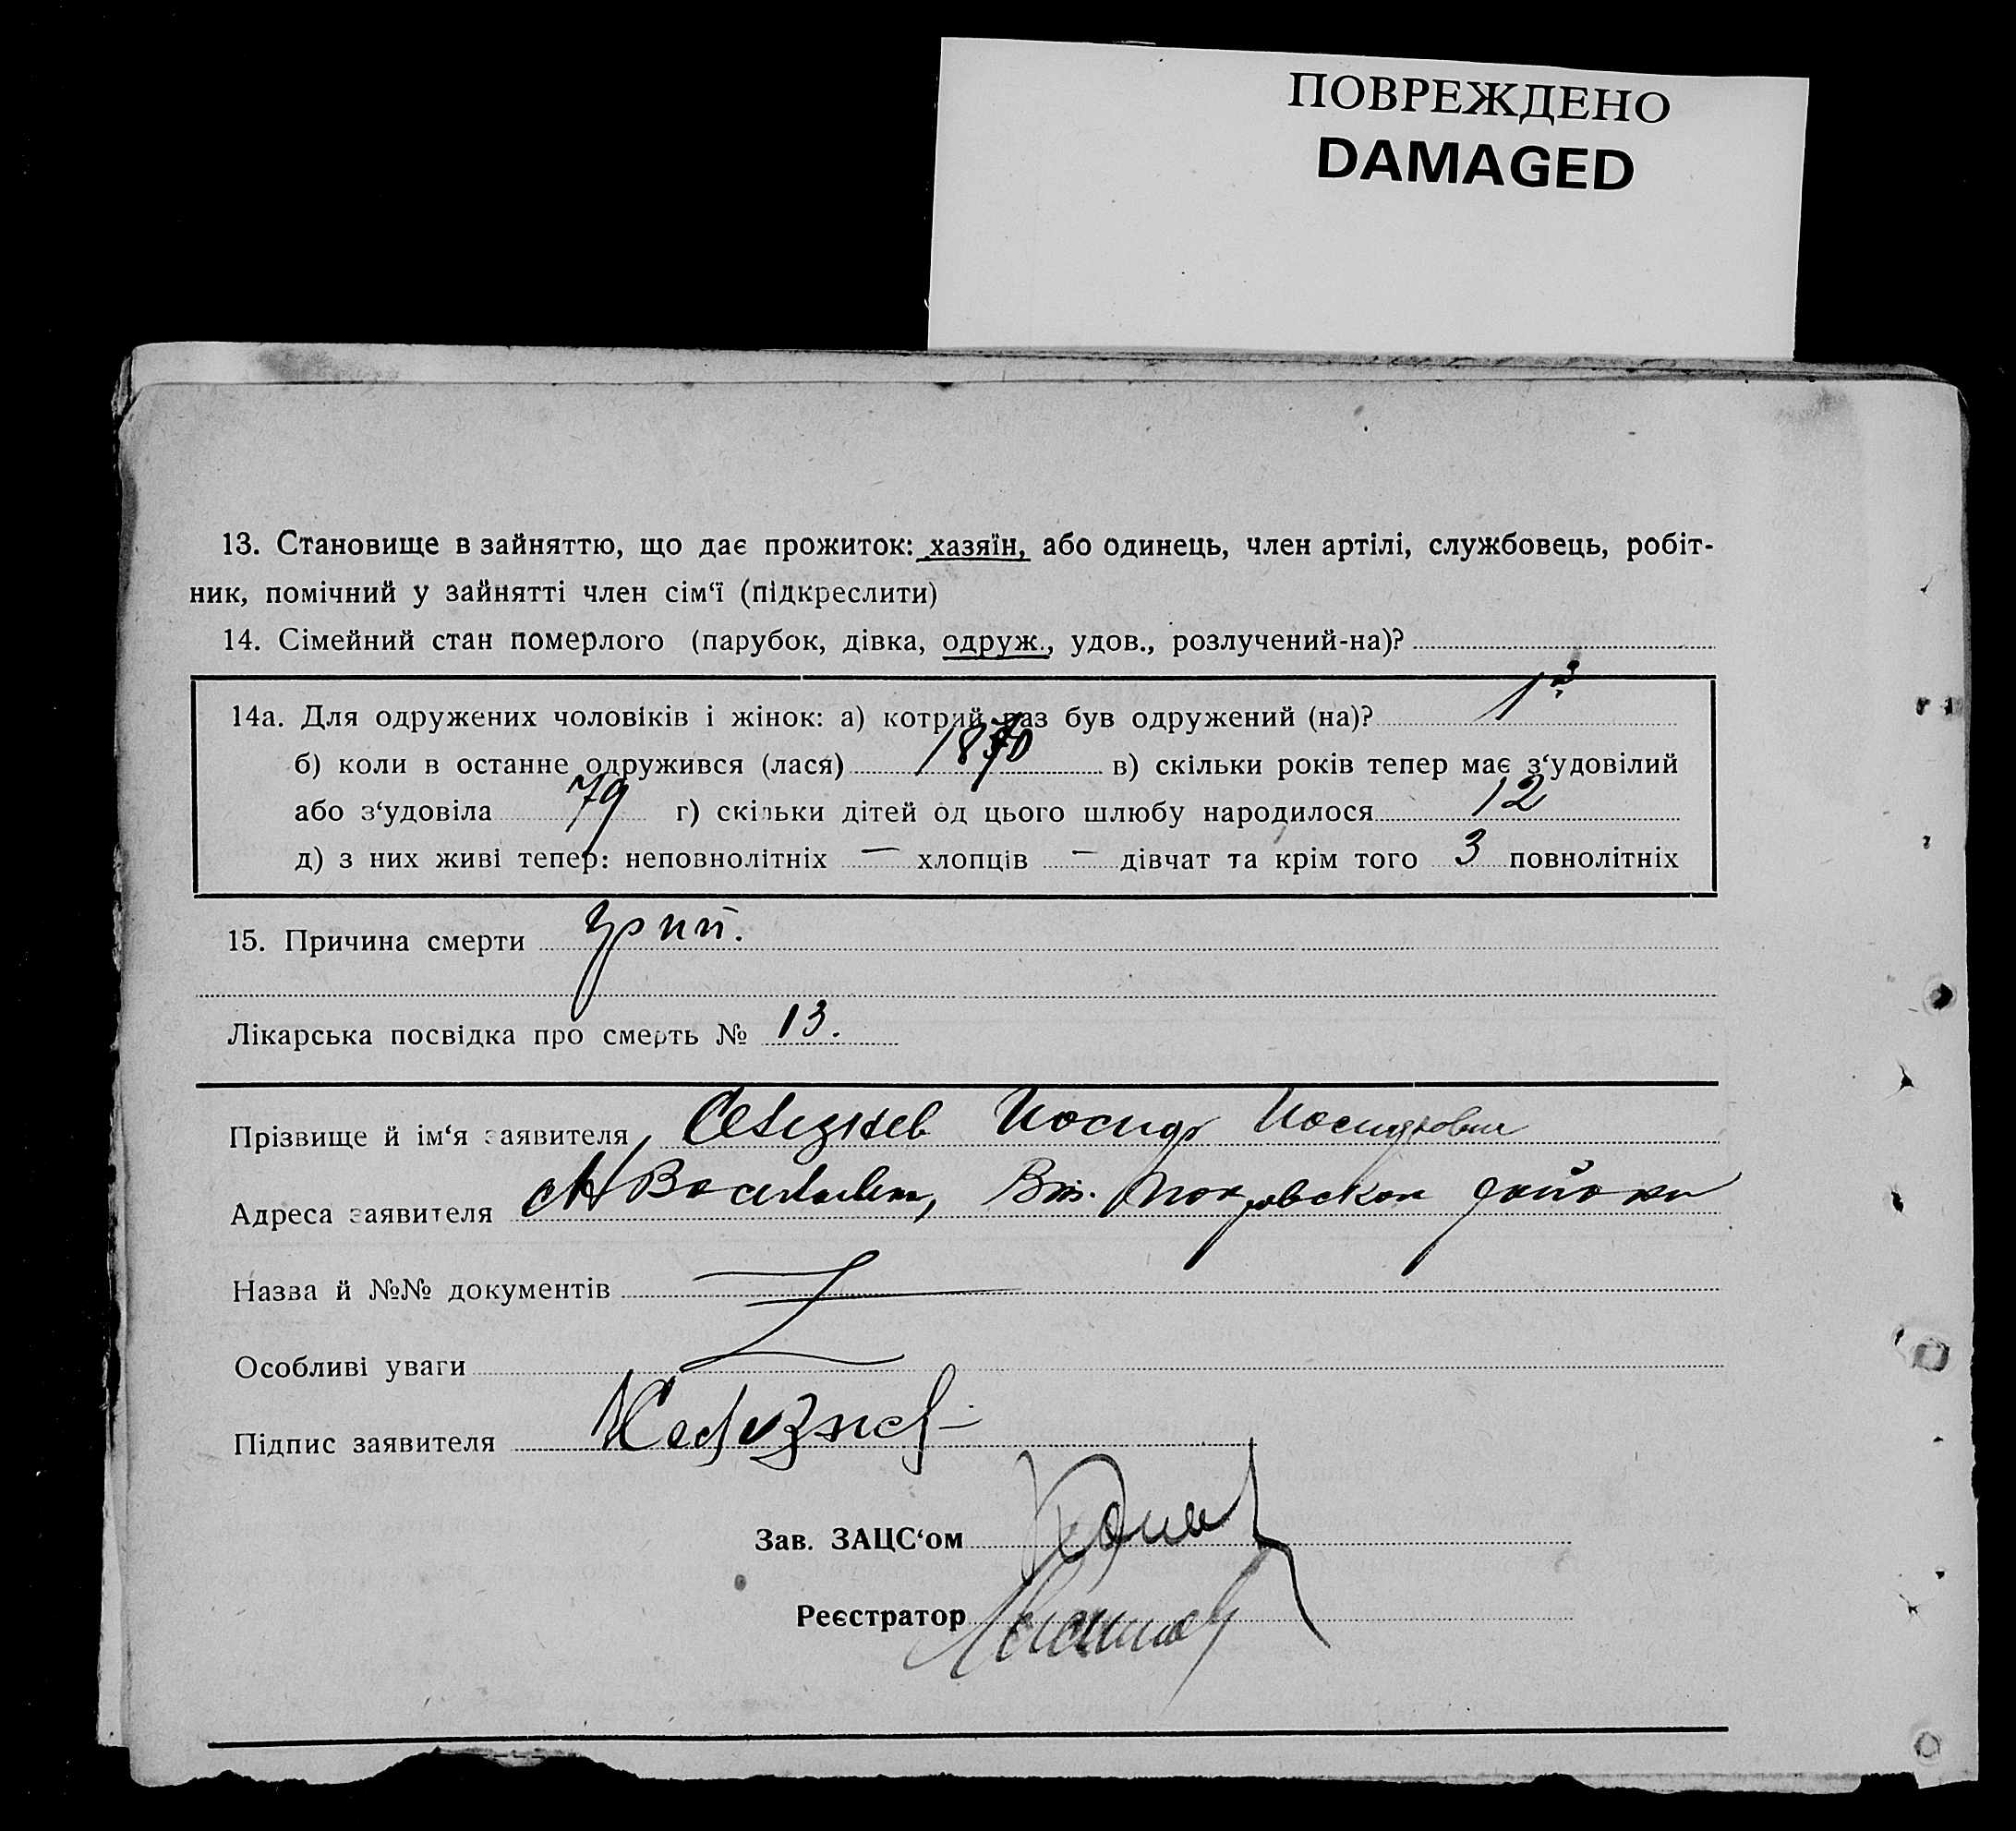 ПОВРЕЖДЕНО
DAMAGED
13. Становище в зайняттю, що дає прожиток: хазяїн, або одинець, член артілі, службовець, робіт-
ник, помічний у зайнятті член сім‘ї (підкреслити)
14. Сімейний стан померлого (парубок, дівка, одруж., удов., розлучений-на)?
14а. Для одружених чоловіків і жінок: а) котрий раз був одружений (на)? 1й
б) коли в останне одружився (лася) 1870 в) скільки років тепер має з‘удовілий
або з‘удовіла 79 г) скільки дітей од цього шлюбу народилося 12
д) з них живі тепер: неповнолітніх — хлопців — дівчат та крім того 3 повнолітніх
15. Причина смерти грип.
Лікарська посвідка про смерть № 13.
Прізвище й ім‘я заявителя Селезнев Иосиф Иосифович
Адреса заявителя
Назва й №№ документів
Особливі уваги
Підпис заявителя Селезнев
Зав. ЗАЦС‘ом
Реєстратор